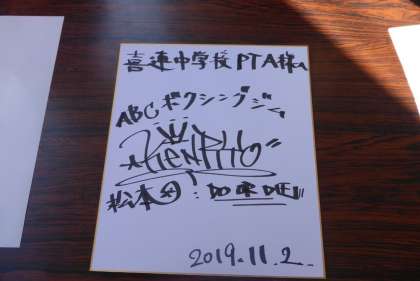 喜連中学校PTA様
ABCボクシングジム
KENPHU
松本 DO OR DIE!!
2019.11.2.